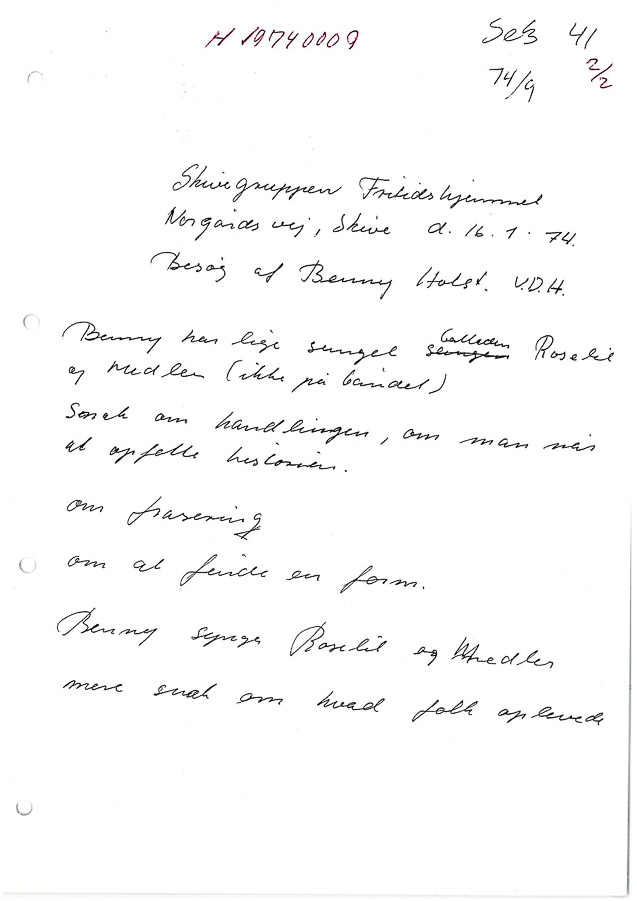 H 19740009
Seb 41
74/9 2/2
Skivegruppen Fritidshjemmet
Norgårdsvej, Skive d. 16.1.74.
Besøg af Benny Holst. V.D.H.
Benny har lige sunget balladen Roselil
og Medlen (ikke på båndet)
Snak om handlingen, om man når
at opfatte historien.
om frasering
om at finde en form.
Benny synger Roselil og Medlen
mere snak om hvad folk oplevede